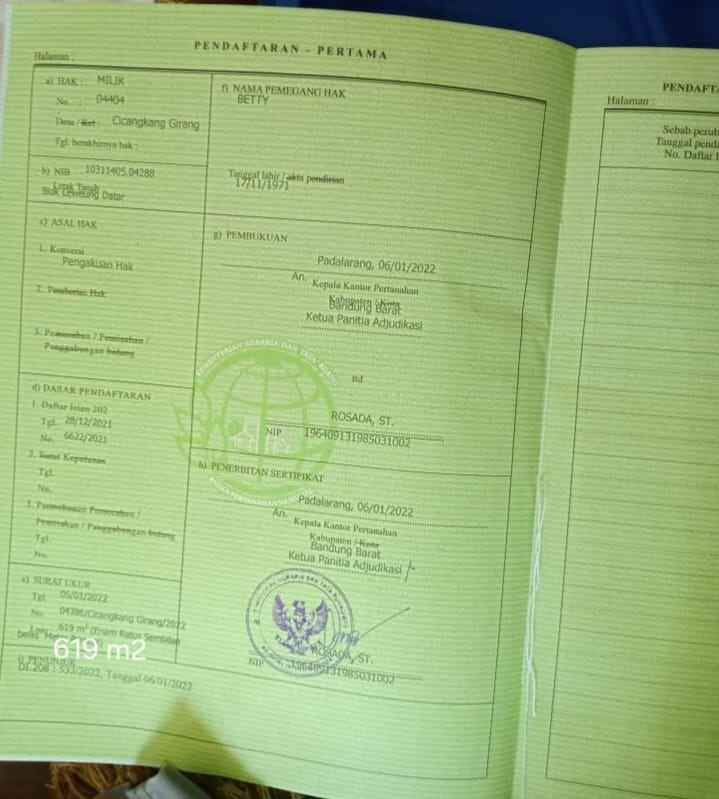 PENDAFTARAN - PERTAMA
Halaman :
a) HAK : MILIK
No. : 04404
Desa / Kel : Cicangkang Girang
Tgl. berakhirnya hak :
b) NIB 10311405.04288
Letak Tanah
Blok Leuwung Datar
c) ASAL HAK
1. Konversi
Pengakuan Hak
2. Pemberian Hak
3. Pemecahan / Pemisahan /
Penggabungan bidang
d) DASAR PENDAFTARAN
1. Daftar Isian 202
Tgl. 28/12/2021
No. 6622/2021
2. Surat Keputusan
Tgl.
No.
3. Permohonan Pemecahan /
Pemisahan / Penggabungan bidang
Tgl.
No.
e) SURAT UKUR
Tgl. 05/01/2022
No. 04386/Cicangkang Girang/2022
Luas 619 m² (Enam Ratus Sembilan
belas
619 m2
f) NAMA PEMEGANG HAK
BETTY
Tanggal lahir / akta pendirian
17/11/1971
g) PEMBUKUAN
Padalarang, 06/01/2022
An. Kepala Kantor Pertanahan
Kabupaten / Kota
Bandung Barat
Ketua Panitia Adjudikasi
ttd
ROSADA, ST.
NIP 196409131985031002
h) PENERBITAN SERTIPIKAT
Padalarang, 06/01/2022
An. Kepala Kantor Pertanahan
Kabupaten / Kota
Bandung Barat
Ketua Panitia Adjudikasi
ROSADA, ST.
NIP 196409131985031002
i) PENUNJUK
DI.208 : 533/2022, Tanggal 06/01/2022
PENDAFTA
Halaman :
Sebab perub
Tanggal penda
No. Daftar I